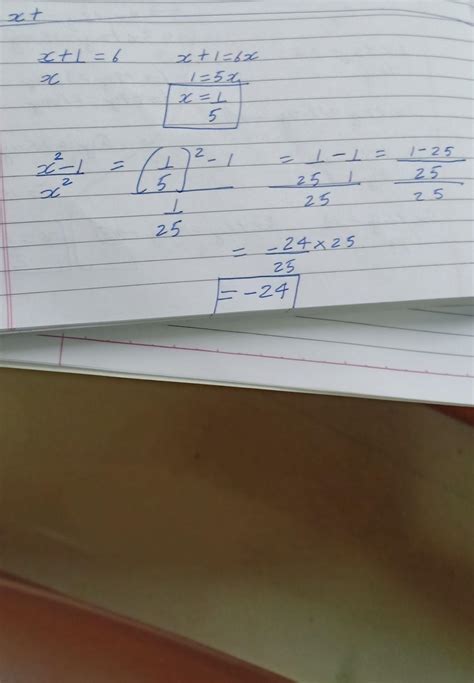 x+
x+1 = 6 x+1=6x
x 1=5x
x=1
5
x²-1 = (1/5)²-1 = 1 - 1 = 1-25
x² 1 25 1 25
25 25 25
= -24 × 25
25
= -24